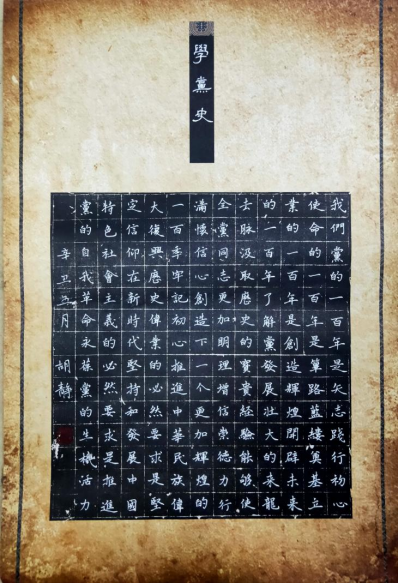 學黨史
我們黨的一百年是矢志踐行初心
使命的一百年是篳路藍縷奠基立
業的一百年是創造輝煌開辟未來
的一百年了解黨發展壯大的來龍
去脉汲取歷史的寶貴經驗能够使
全黨同志更加明理增信崇德力行
滿懷信心創造下一个更加輝煌的
一百年牢記初心推進中華民族偉
大復興歷史偉業的必然要求是堅
定信仰在新時代堅持和發展中國
特色社會主義的必然要求是推進
黨的自我革命永葆黨的生機活力
辛丑五月 胡靜